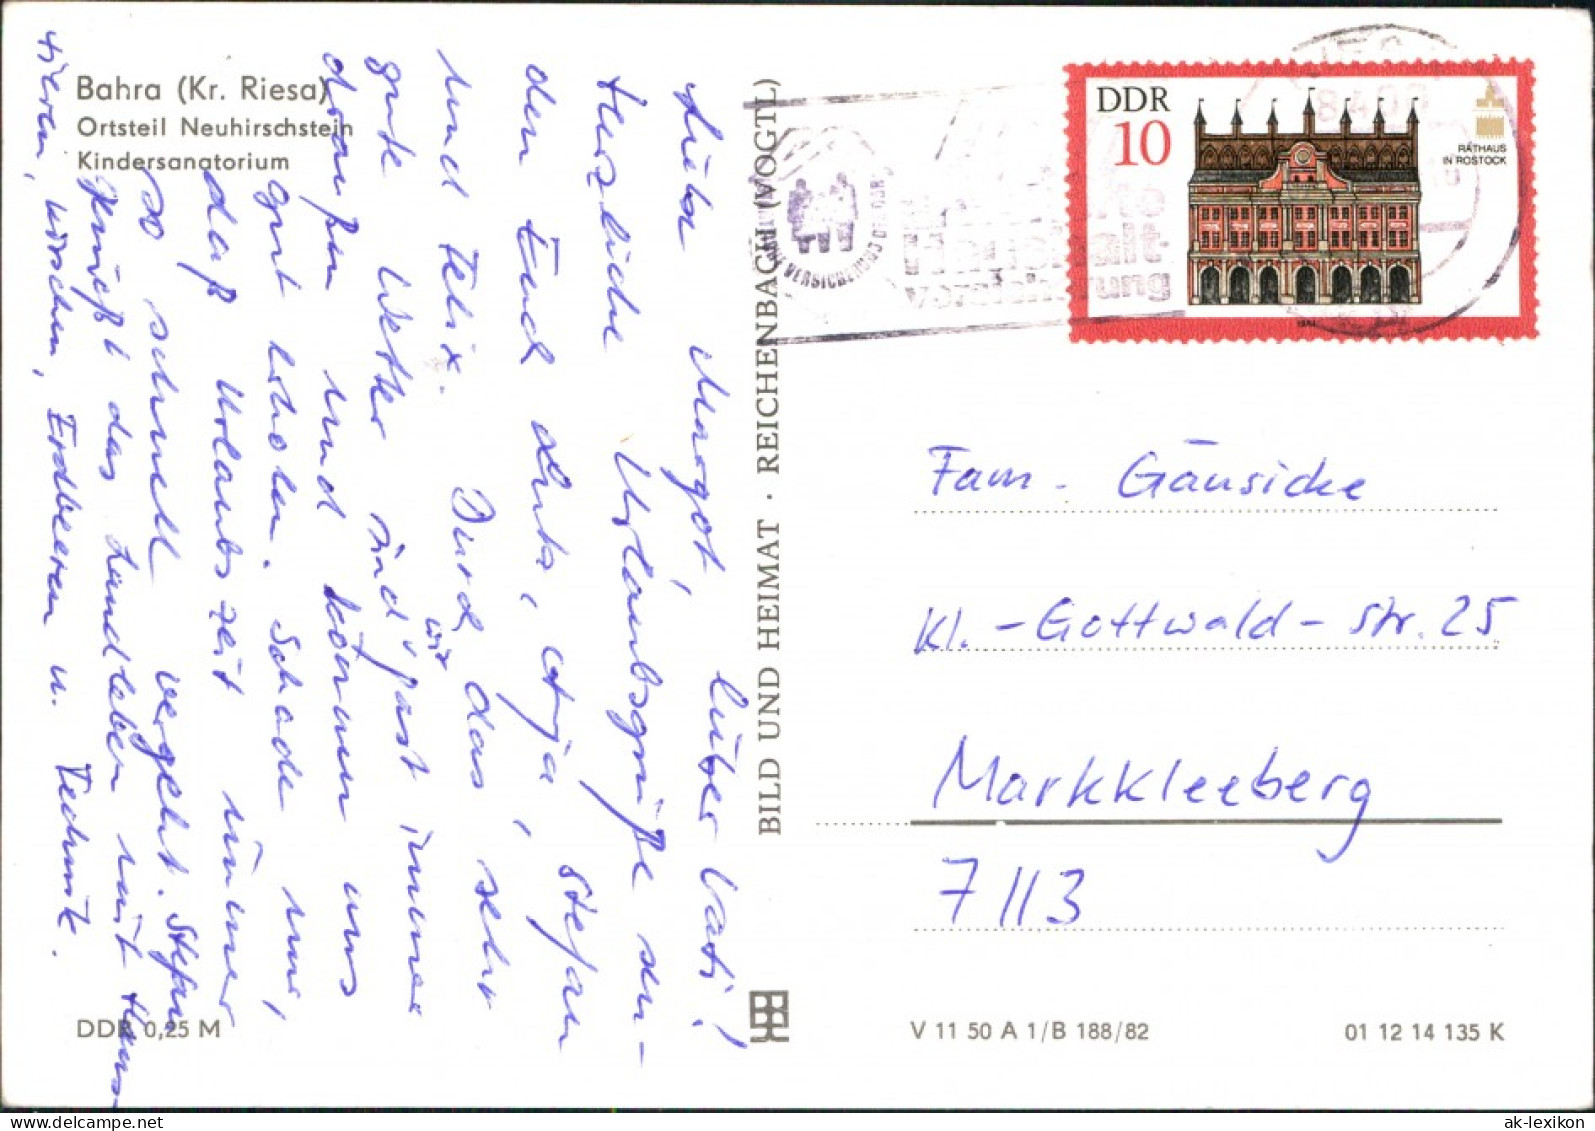 Bahra (Kr. Riesa)
Ortsteil Neuhirschstein
Kindersanatorium
Liebe Margot, lieber Vati!
Herzliche Urlaubsgrüße sen-
den Euch Lutz, Stefan
und Felix. Durch das sehr
gute Wetter sind wir fast immer
draußen und können uns
gut erholen. Schade nur,
daß Urlaubszeit immer
so schnell vergeht. Stefan
genießt das Landleben mit Haus-
tieren, Kirschen, Erdbeeren u. Technik.
DDR 0,25 M
BILD UND HEIMAT · REICHENBACH (VOGTL)
DDR
10
RATHAUS
IN ROSTOCK
VERSICHERUNG DER DDR
Haushalt-
versicherung
Fam. Gänsicke
Kl.-Gottwald-Str. 25
Markkleeberg
7113
V 11 50 A 1/B 188/82
01 12 14 135 K
ak-lexikon